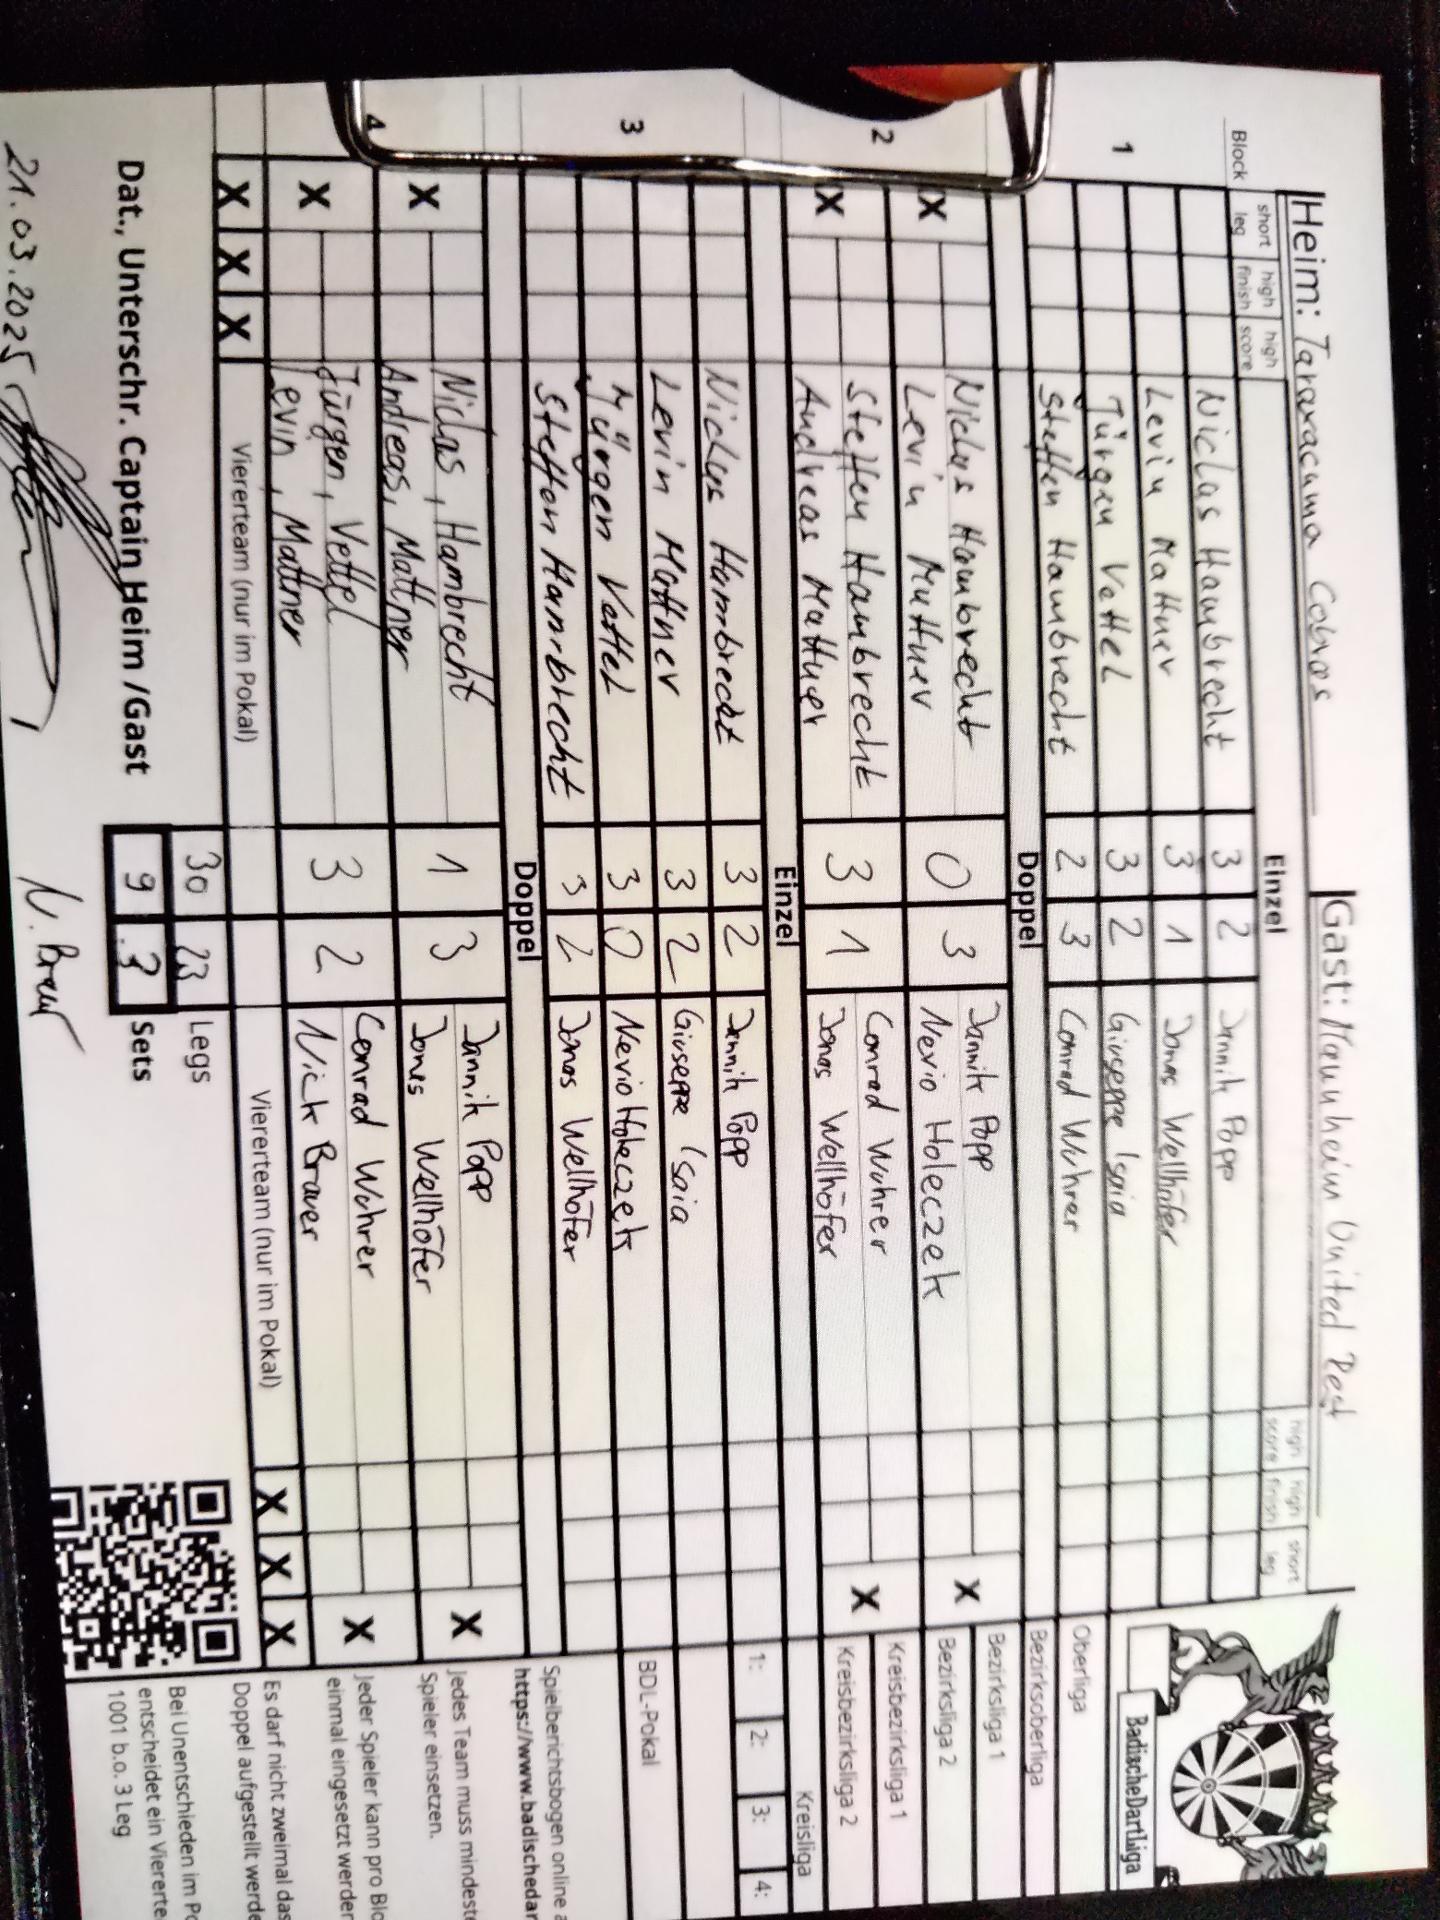 Heim: Taraxacuma Cobras Gast: Mannheim United Rest
Block short leg high finish high score Einzel high score high finish short leg
1
Niclas Hambrecht 3 2 Jannik Popp
Levin Mattner 3 1 Jonas Wellhöfer
Jürgen Vettel 3 2 Giuseppe Isaia
Steffen Hambrecht 2 3 Conrad Wuhrer
Doppel
2
X Niclas Hambrecht 0 3 Jannik Popp X
Levin Mattner Nevio Holeczek
X Steffen Hambrecht 3 1 Conrad Wuhrer X
Andreas Mattner Jonas Wellhöfer
Einzel
3
Niclas Hambrecht 3 2 Jannik Popp
Levin Mattner 3 2 Giuseppe Isaia
Jürgen Vettel 3 0 Nevio Holeczek
Steffen Hambrecht 3 2 Jonas Wellhöfer
Doppel
4
X Niclas, Hambrecht 1 3 Jannik Popp X
Andreas, Mattner Jonas Wellhöfer
X Jürgen, Vettel 3 2 Conrad Wuhrer X
Levin, Mattner Nick Brauer
X X X Viererteam (nur im Pokal) Viererteam (nur im Pokal) X X X
30 23 Legs
Dat., Unterschr. Captain Heim /Gast 9 3 Sets
21.03.2025 N. Brauer
BadischeDartLiga
Oberliga
Bezirksoberliga
Bezirksliga 1
Bezirksliga 2
Kreisbezirksliga 1
Kreisbezirksliga 2
Kreisliga
1: 2: 3: 4:
BDL-Pokal
Spielberichtsbogen online a
https://www.badischedar
Jedes Team muss mindest
Spieler einsetzen.
Jeder Spieler kann pro Blo
einmal eingesetzt werden
Es darf nicht zweimal das
Doppel aufgestellt werde
Bei Unentschieden im Po
entscheidet ein Vierertea
1001 b.o. 3 Leg